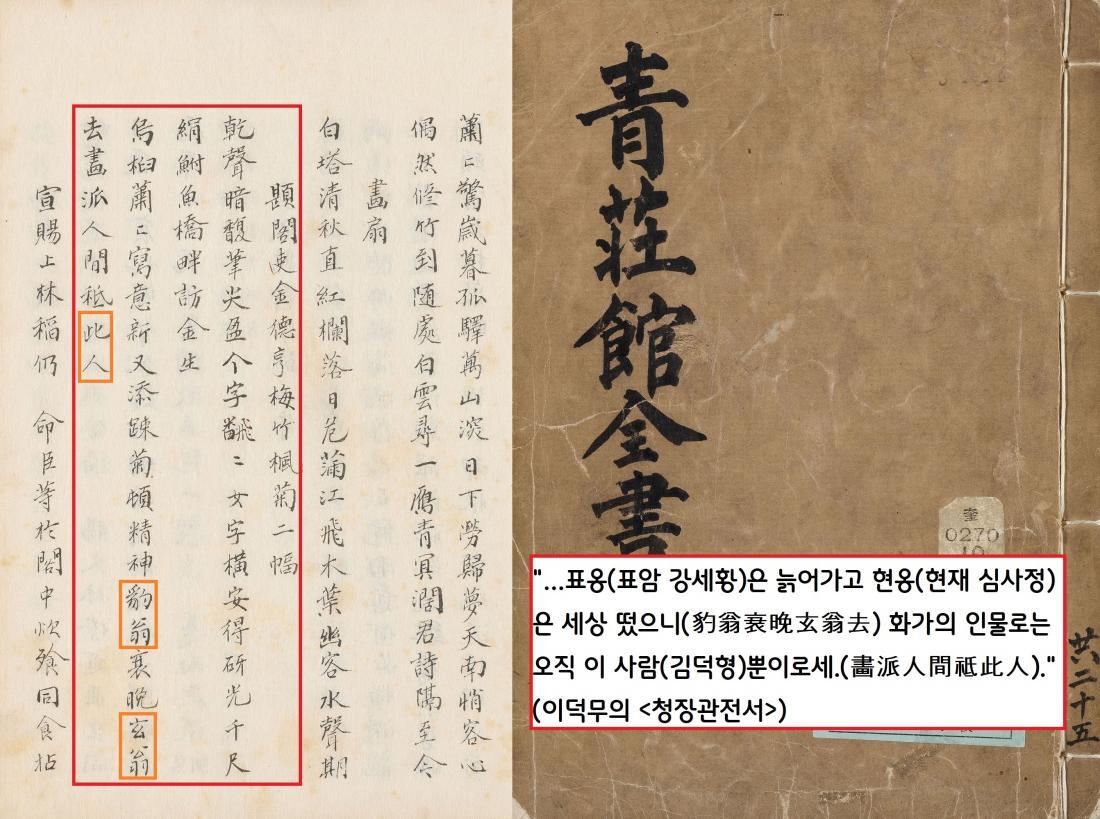 蕭〻驚歲暮孤驛萬山深日下勞歸夢天南悄客心
偶然修竹到随處白雲尋一鴈青冥濶君詩隔至今
畫扇
白塔清秋直紅欄落日危蒲江飛木葉幽客水聲期
題閣吏金德亨梅竹楓菊二幅
乾聲暗馥筆尖盈个字飜〻女字橫安得砑光千尺
絹鮒魚橋畔訪金生
烏桕蕭〻寫意新又添踈菊頓精神豹翁衰晚玄翁
去畫派人間秖此人
宣賜上林稻仍 命臣等於閣中炊飧同食拈
青莊館全書
奎
0270
"...표옹(표암 강세황)은 늙어가고 현옹(현재 심사정)
은 세상 떴으니(豹翁衰晚玄翁去) 화가의 인물로는
오직 이 사람(김덕형)뿐이로세.(畵派人間祗此人)."
(이덕무의 <청장관전서>)
共二十五